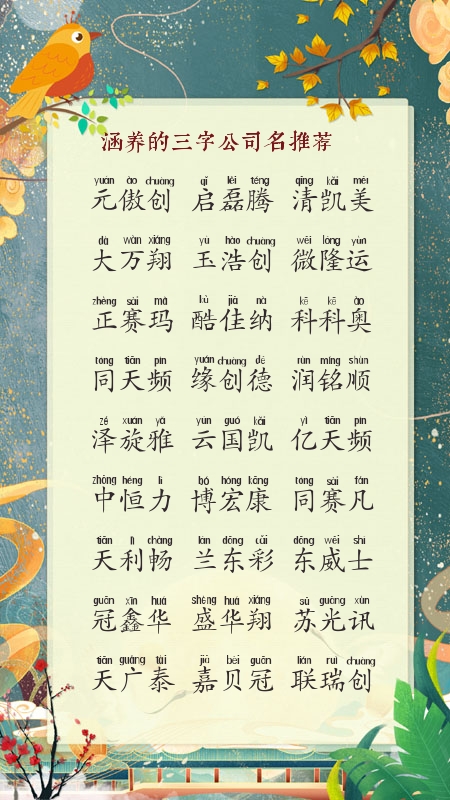 涵养的三字公司名推荐
yuán ào chuàng qǐ lěi téng qīng kǎi měi
元傲创 启磊腾 清凯美
dà wàn xiáng yù hào chuàng wēi lóng yùn
大万翔 玉浩创 微隆运
zhèng sài mǎ kù jiā nà kē kē ào
正赛玛 酷佳纳 科科奥
tóng tiān pín yuán chuàng dé rùn míng shùn
同天频 缘创德 润铭顺
zé xuán yǎ yún guó kǎi yì tiān pín
泽旋雅 云国凯 亿天频
zhōng héng lì bó hóng kāng tóng sài fán
中恒力 博宏康 同赛凡
tiān lì chàng lán dōng cǎi dōng wēi shì
天利畅 兰东彩 东威士
guān xīn huá shèng huá xiáng sū guāng xùn
冠鑫华 盛华翔 苏光讯
tiān guǎng tài jiā bèi guān lián ruì chuàng
天广泰 嘉贝冠 联瑞创